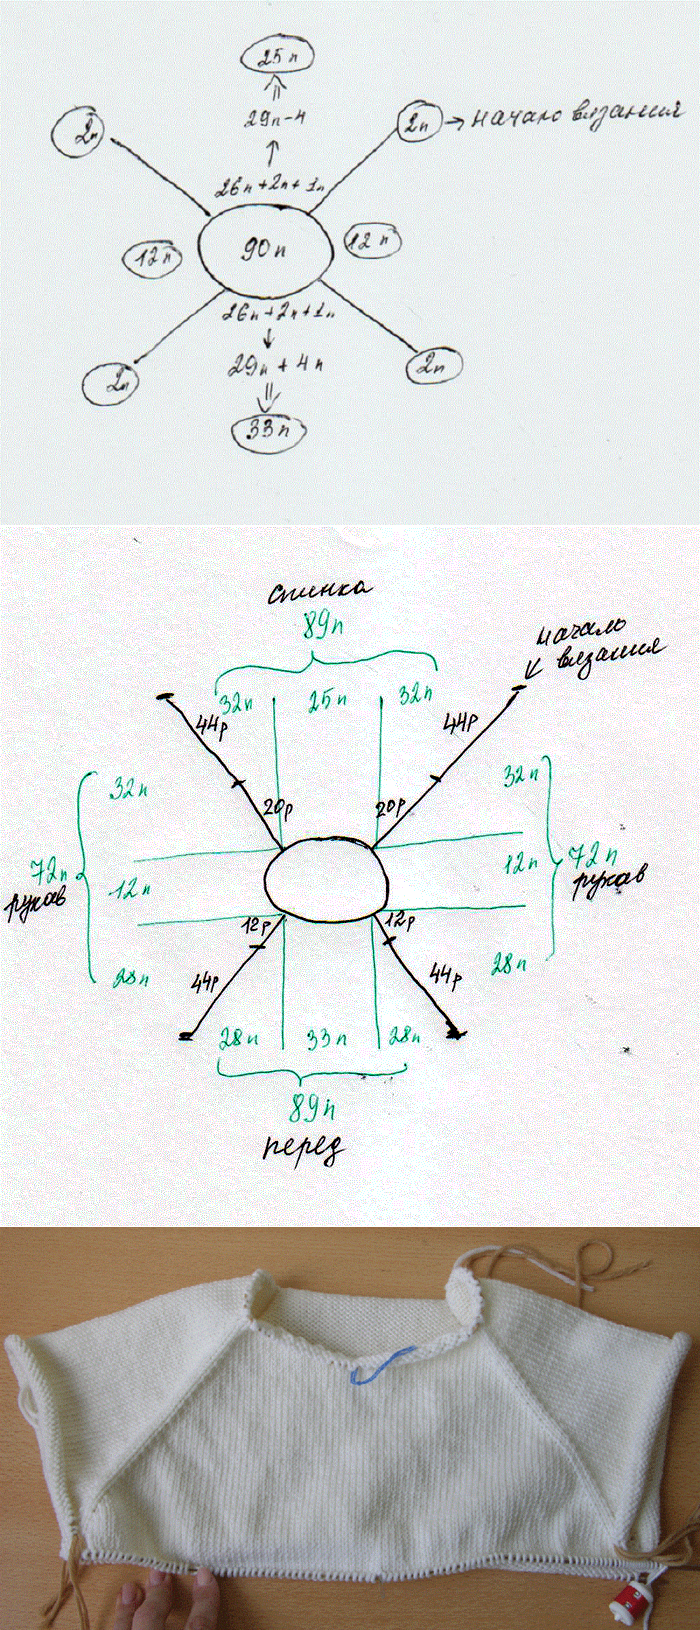 25п
29п-4
2п
2п → начало вязания
26п+2п+1п
12п
90п
12п
26п+2п+1п
29п+4п
2п
2п
33п
спинка
89п
начало
вязания
32п
25п
32п
44р
44р
32п
32п
20р
20р
72п
рукав
12п
12п
72п
рукав
12р
12р
28п
44р
44р
28п
28п
33п
28п
89п
перед